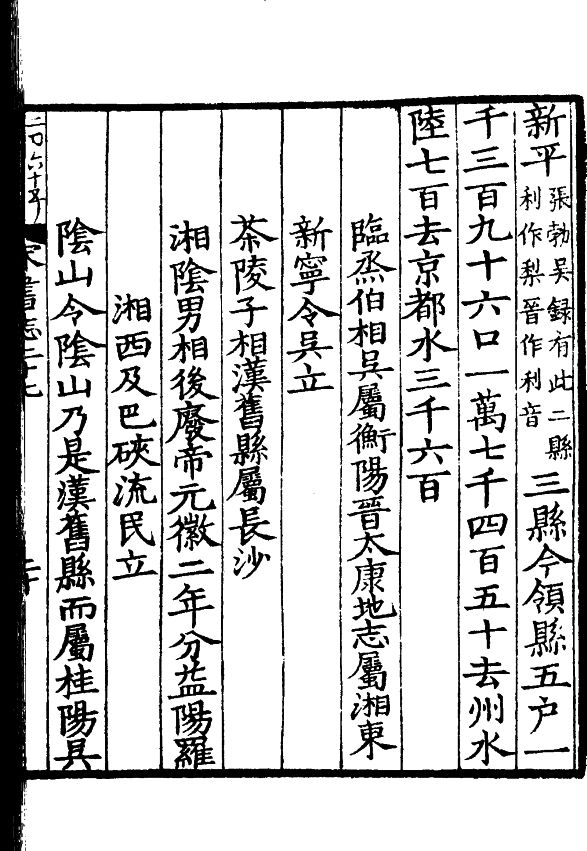 新平張勃吳録有此二縣利作梨晉作利音三縣今領縣五户一
千三百九十六口一萬七千四百五十去州水
陸七百去京都水三千六百
臨烝伯相吳屬衡陽晉太康地志屬湘東
新寧令吳立
茶陵子相漢舊縣屬長沙
湘陰男相後廢帝元徽二年分益陽羅
湘西及巴硤流民立
陰山令陰山乃是漢舊縣而屬桂陽吳
宋書志二十七